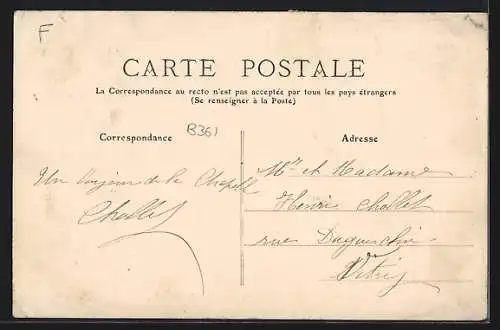 F
CARTE POSTALE
La Correspondance au recto n'est pas acceptée par tous les pays étrangers
(Se renseigner à la Poste)
Correspondance
B361
Adresse
Un bonjour de la Chapelle
Chollet
Mr et Madame
Henri Chollet
rue Duguesclin
Vitré